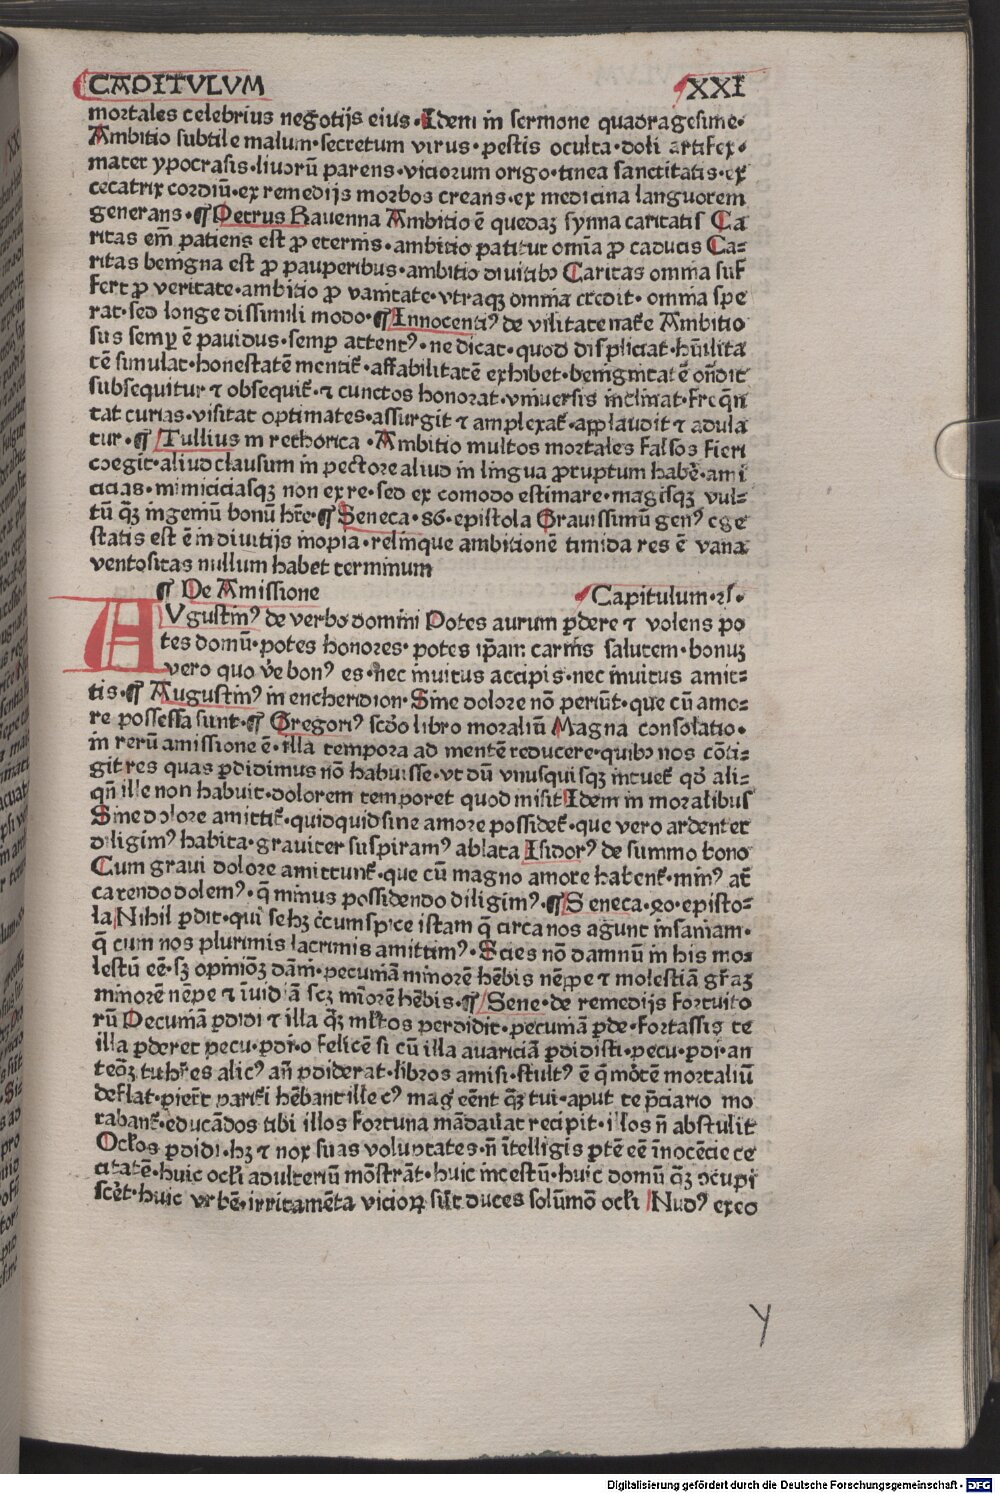 CAPITULUM XXI
mortales celebrius negotijs eius·Idem in sermone quadragesime·
Ambitio subtile malum·secretum virus·pestis occulta·doli artifex·
mater ypocrasis·livorū parens·viciorum origo·tinea sanctitatis·ex
cecatrix cordiū·ex remedijs morbos creans·ex medicina languorem
generans·¶ Petrus Ravenna Ambitio ē quedaꝫ symia caritatis Ca
ritas em̄ patiens est ꝓ eternis·ambitio patitur omīa ꝓ caducis Ca=
ritas benigna est ꝓ pauperibus·ambitio divitibꝫ Caritas omnia suf
fert ꝓ veritate·ambitio ꝓ vanitate·vtraqꝫ omnia credit·omnia spe
rat·sed longe dissimili modo·¶ Innocentiꝰ de vilitate nat̄e Ambitio
sus semꝑ ē pavidus·semꝑ attentꝰ·ne dicat·quod displiciat·hūilita
tē simulat·honestatē mentit̄·affabilitatē exhibet·benignitatē oñdit
subsequitur ⁊ obsequit̄·⁊ cunctos honorat·vniversis inclinat·freqñ
tat curias·visitat optimates·assurgit ⁊ amplexat̄·applaudit ⁊ adula
tur·¶ Tullius in rethorica·Ambitio multos mortales falsos fieri
coegit·aliud clausum in pectore aliud in lingua ꝓruptum habē·ami
cicias·inimiciciasqꝫ non ex re·sed ex comodo estimare·magisqꝫ vul=
tū qꝫ ingeniū bonū hr̄e·¶ Seneca·86·epistola Gravissimū genꝰ ege
statis est ē in divitijs inopia·relinque ambitionē timida res ē vana
ventositas nullum habet terminum
¶ De Amissione Capitulum·21·
AUgustinꝰ de verbo domini Potes aurum ꝑdere ⁊ volens po
tes domū·potes honores·potes ip̄am carnis salutem·bonuꝫ
vero quo v̄e bonꝰ es·nec invitus accipis·nec invitus amit=
tis·¶ Augustinꝰ in encheridion·Sine dolore nō periūt·que cū amo=
re possessa sunt·¶ Gregoriꝰ scd̄o libro moraliū Magna consolatio·
in rerū amissione ē·illa tempora ad mentē reducere·quibꝫ nos cōti=
git res quas ꝑdidimus nō habuisse·vt dū vnusquisqꝫ intuet̄ qd̄ ali=
qñ ille non habuit·dolorem temporet quod misit Idem in moralibus
Sine dolore amittit̄·quidquid sine amore possidet̄·que vero ardenter
diligimꝰ habita·graviter suspiramꝰ ablata Isidorꝰ de summo bono
Cum gravi dolore amittunt̄·que cū magno amore habent̄·minꝰ at̄
carendo dolemꝰ·q̄ minus possidendo diligimꝰ·¶ Seneca·90·episto=
la Nihil ꝑdit·qui se hꝫ c̄cumspice istam q̄ circa nos agunt insaniam·
q̄ cum nos plurimis lacrimis amittimꝰ·Scies nō damnū in his mo=
lestū eē·sꝫ opiniōꝫ dām̄·pecuniā minorē hēbis nēpe ⁊ molestiā gr̄aꝫ
minorē nēpe ⁊ īuidiā scꝫ miorē hēbis·¶ Sene·de remedijs fortuito
rū Pecuniā ꝑdidi ⁊ illa qꝫ ml̄tos perdidit·pecuniā ꝑde·fortassis te
illa ꝑderet pecu·ꝑdi·o felicē si cū illa avariciā ꝑdidisti·pecu·ꝑdi·an
teōꝫ tu hr̄es alicꝰ añ ꝑdiderat·libros amisi·stultꝰ ē q̄ mōtē mortaliū
deflat·pier̄t parit̄i hēbant ille cꝰ mag eēnt qꝫ tui·aput te p̄ciario mo
rabant̄·educādos tibi illos fortuna mādavat recipit·illos ñ abstulit
Ocl̄os ꝑdidi·hꝫ ⁊ nox suas voluptates·ñ ītelligis ꝑtē eē īnocēcie ce
citatē·huic ocl̄i adulteriū mōstrāt·huic incestū·huic domū qꝫ ↄcupi
scēt·huic vrbē·irritamēta vicioꝝ sūt duces solūmō ocl̄i Nudꝰ exco
y
Digitalisierung gefördert durch die Deutsche Forschungsgemeinschaft - DFG